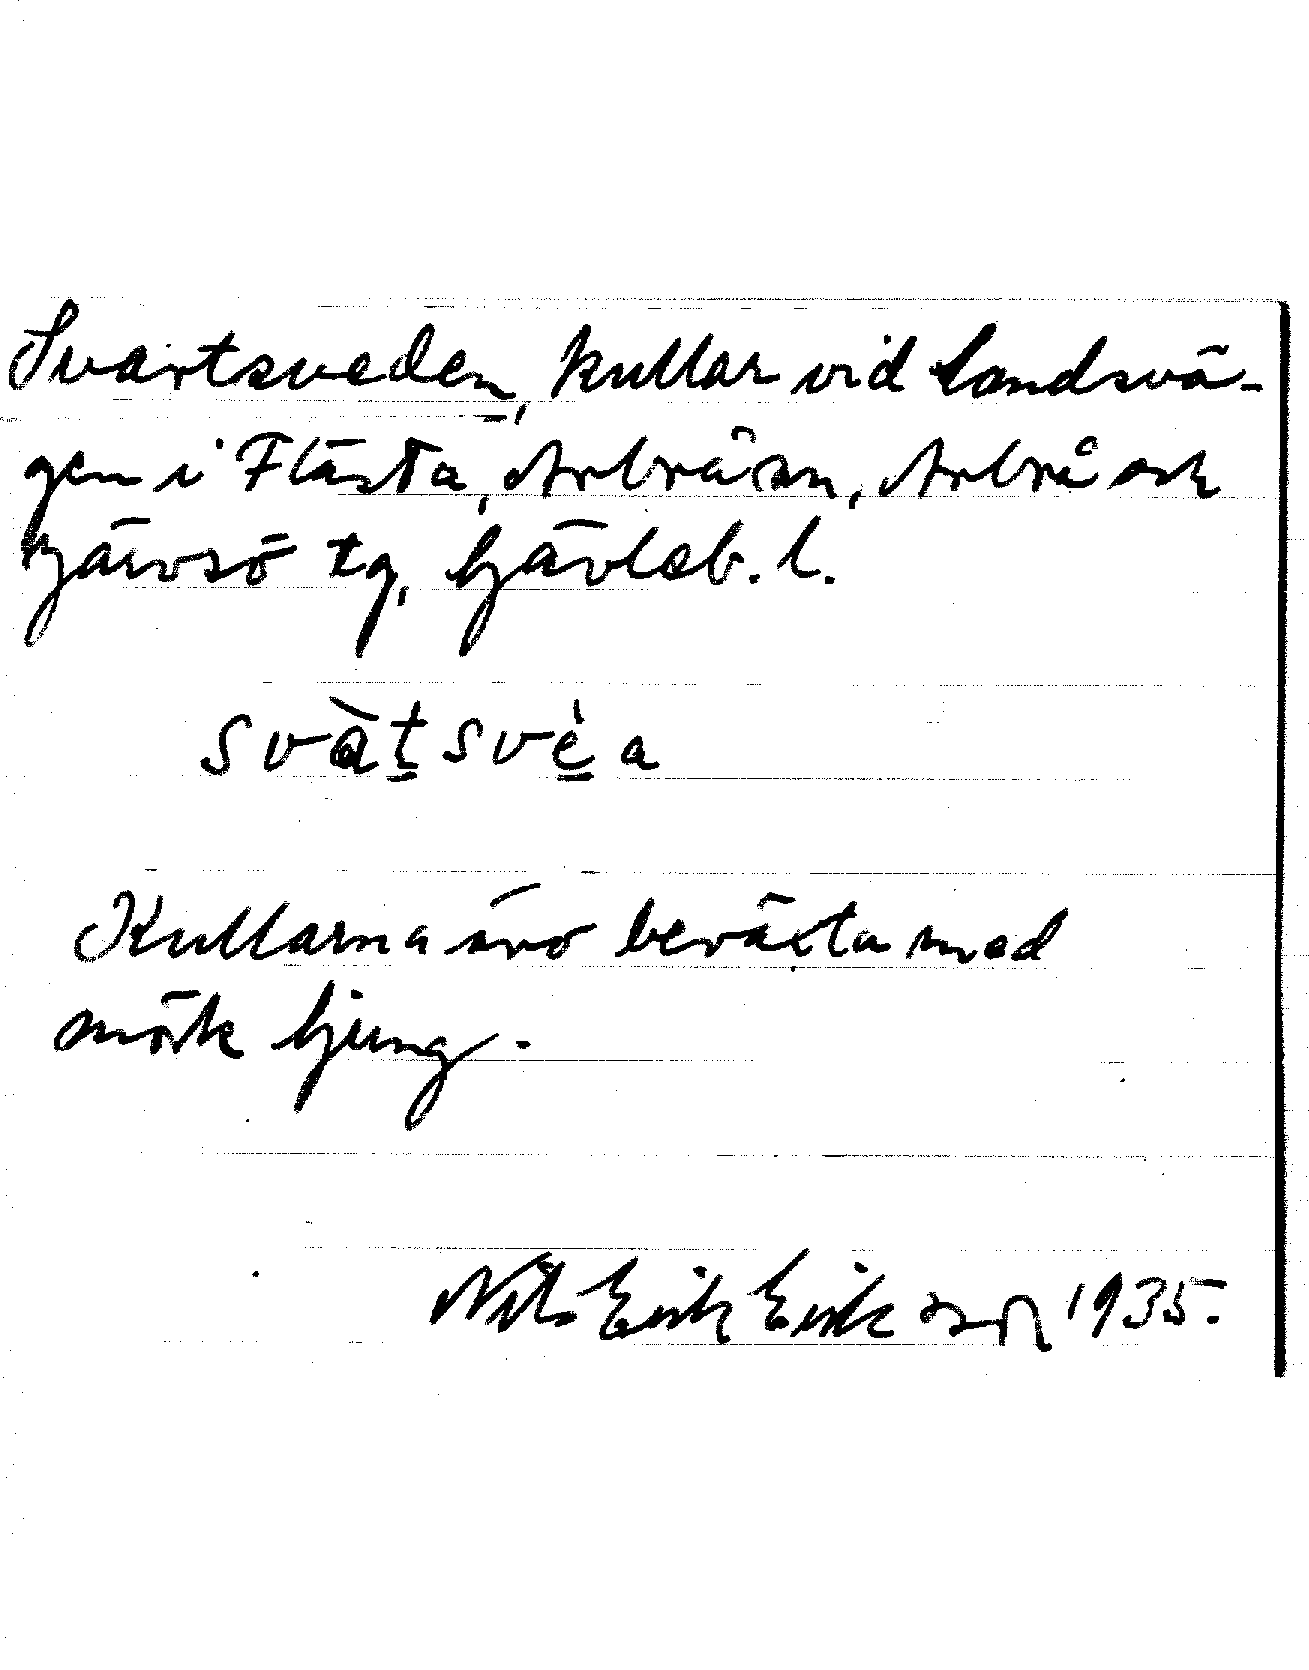 Svartsveden, kullar vid landsvä-
gen i Flästa, Arbrå sn, Arbrå och
Järvsö tg, Gävleb. l.
svàt̲svè̲a
Kullarna äro beväxta med
mörk ljung.
Nils Erik Eriksson 1935.